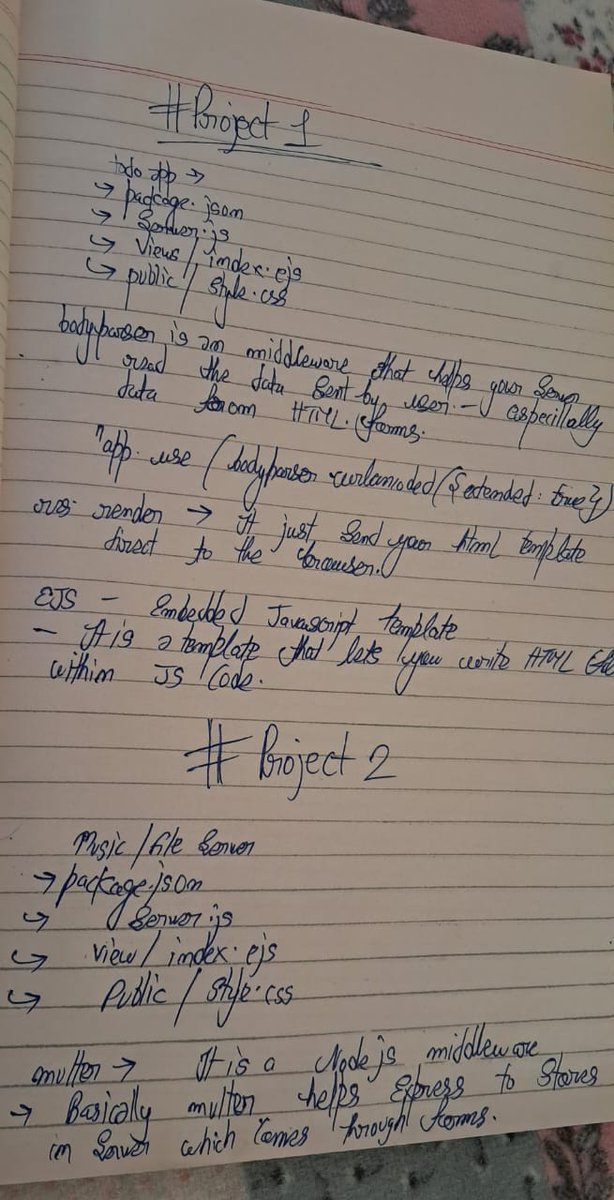 #Project 1
todo app →
↪ package.json
↪ Server.js
↪ Views / index.ejs
↪ public / style.css
bodyparser is an middleware that helps your Server
read the data sent by user - especillally
data from HTML forms.
"app.use (bodyparser urlencoded ({extended: true})
res: render → It just send your html template
direct to the browser.
EJS - Embedded Javascript template
- It is a template that lets you write HTML
within JS Code.
# Project 2
Music / file Server
→ package.json
↪ Server.js
↪ view / index.ejs
↪ Public / style.css
multer → It is a Node js middleware
→ Basically multer helps Express to Stores
in Server which comes through forms.